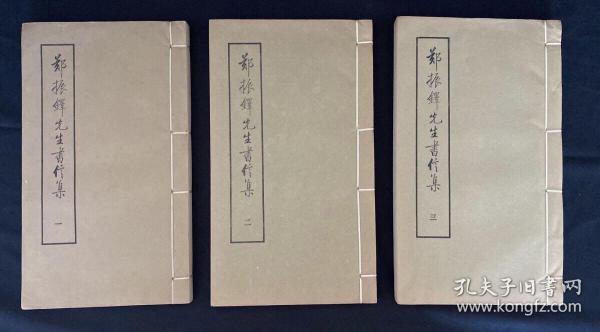 郑振铎先生书信集
一
郑振铎先生书信集
二
郑振铎先生书信集
三
孔夫子旧书网
www.kongfz.com